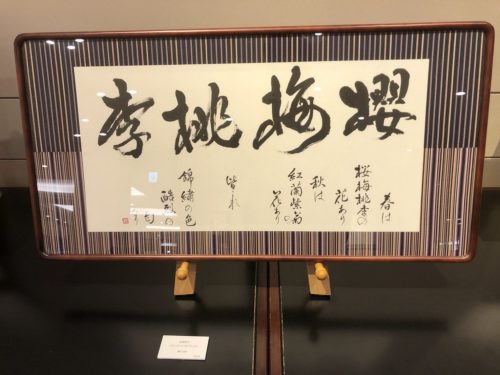 櫻梅桃李
春は
桜梅桃李の
花あり
秋は
紅蘭紫菊の
花あり
皆これ
錦繍の色
酷烈の